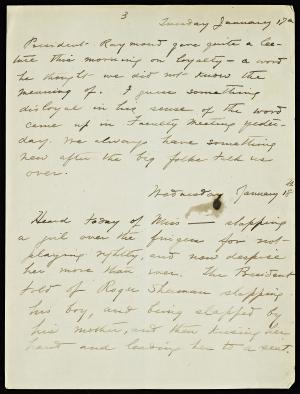 3
Tuesday January 17th
President Raymond gave quite a lec-
ture this morning on loyalty - a word
he thought we did not know the
meaning of. I guess something
disloyal in his sense of the word
came up in Faculty Meeting yester-
day. We always have something
new after the big folks talk us
over.
Wednesday January 18th
Heard today of Miss — slapping
a girl over the fingers for not
playing rightly, and now despise
her more than ever. The President
told of Roger Sherman slapping
his boy, and being slapped by
his mother, and then kissing her
hand and leading her to a seat.